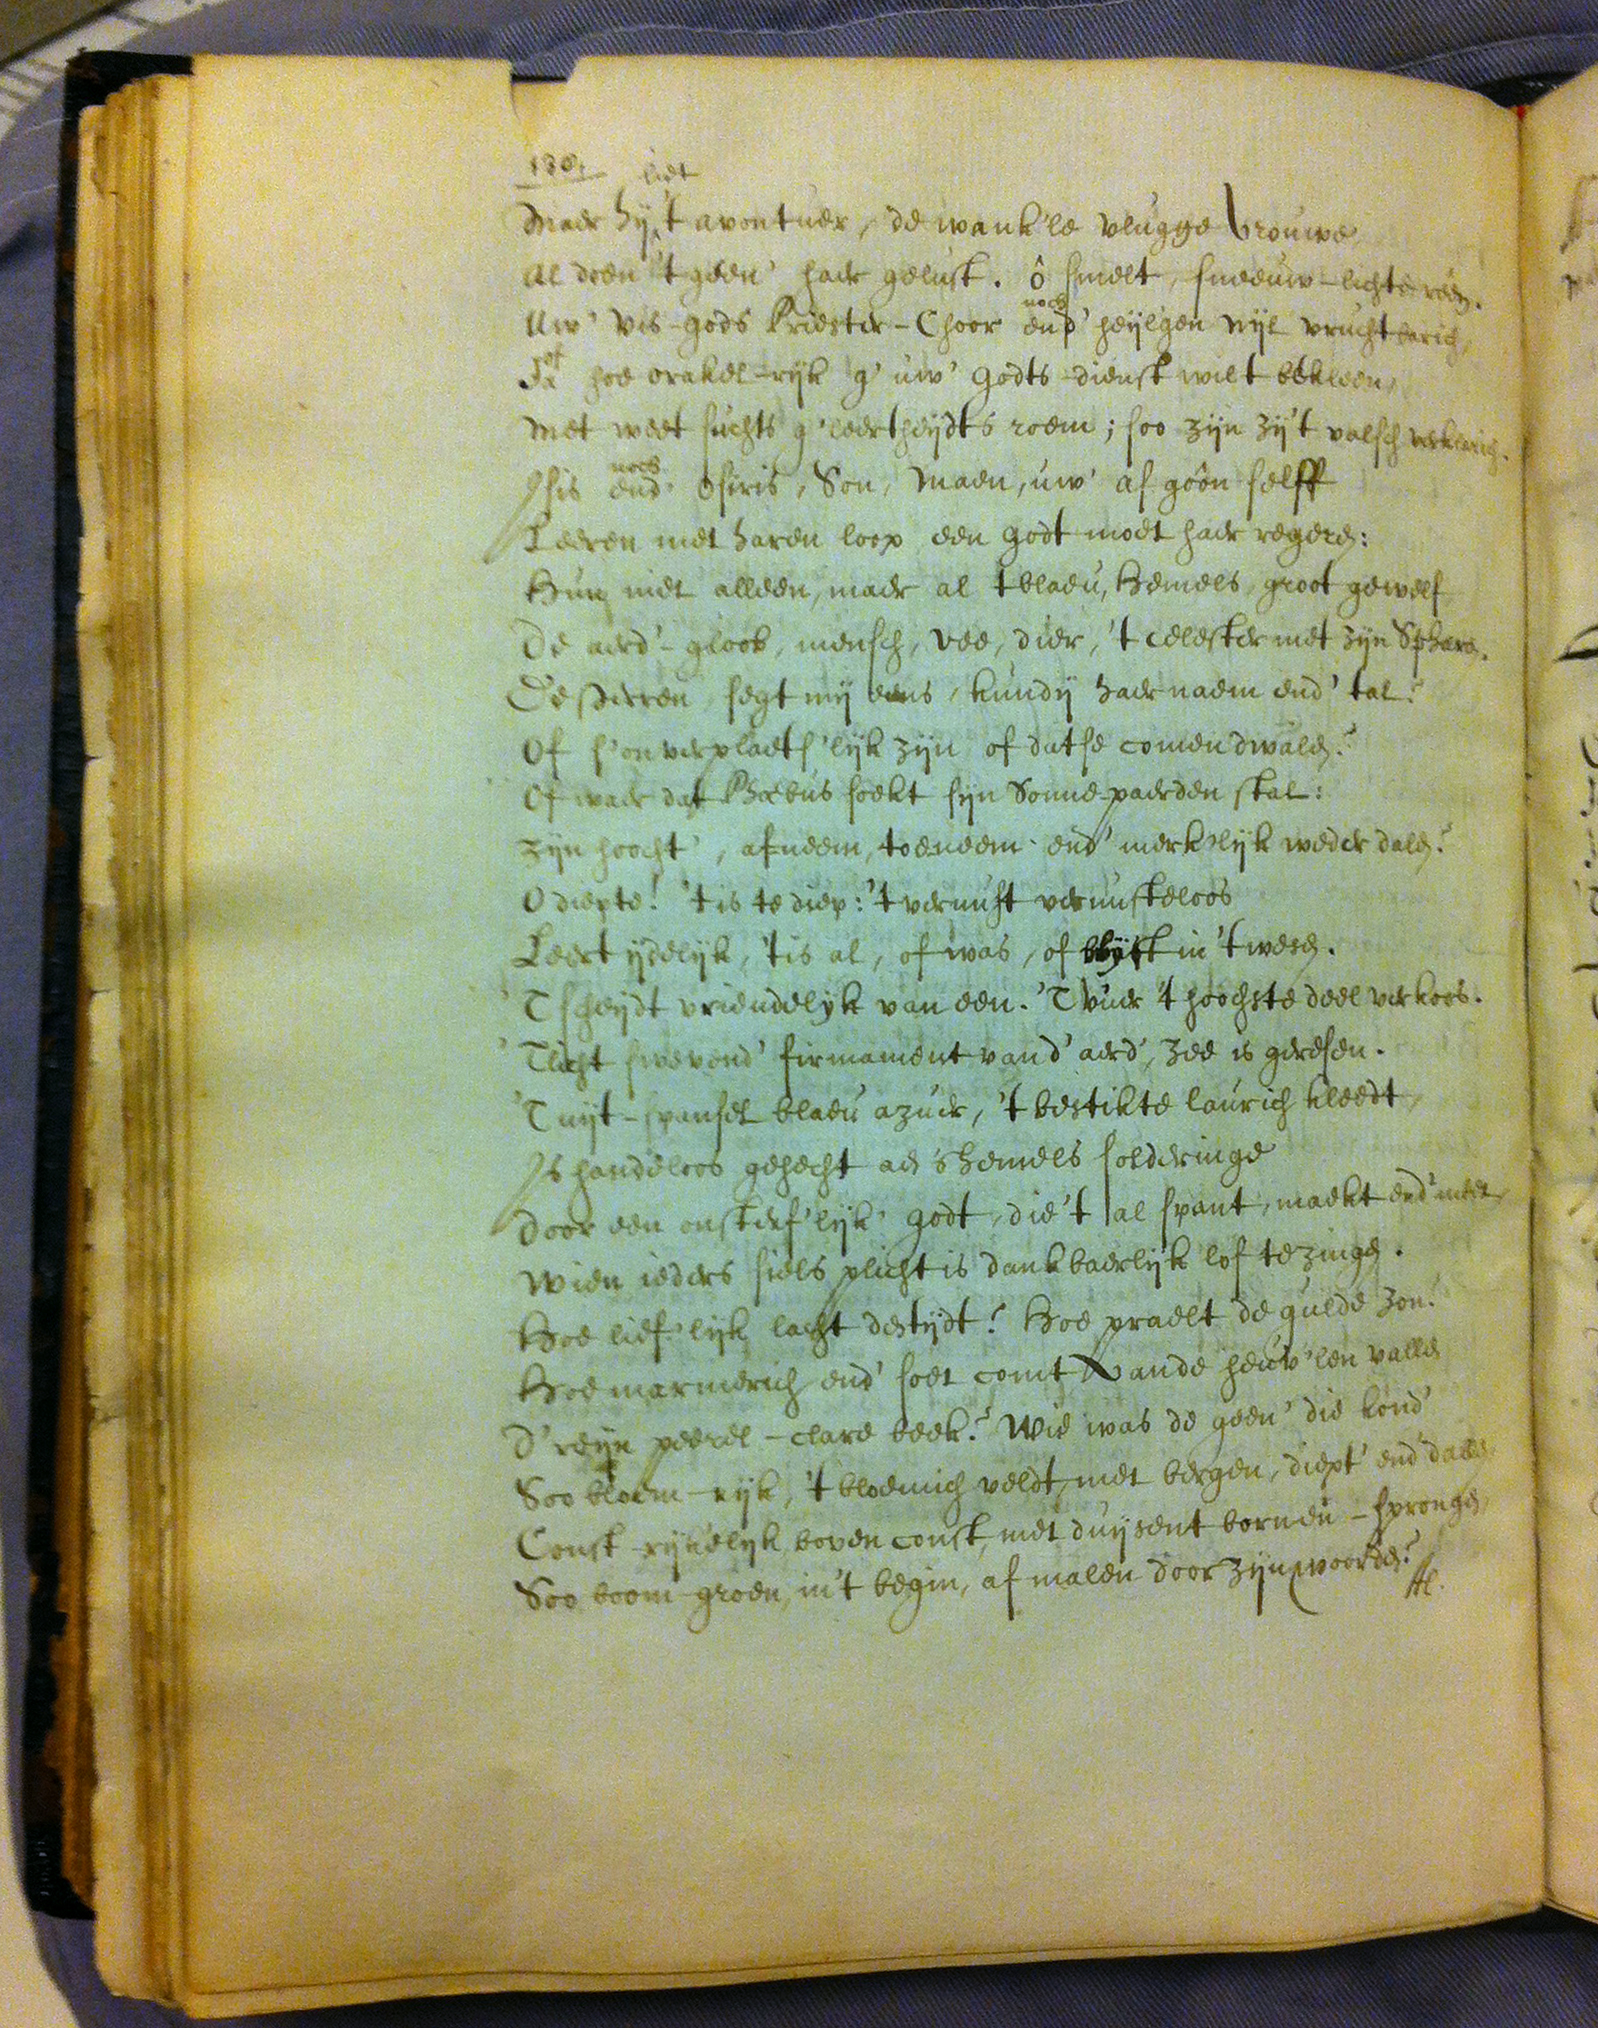 130.
liet
Maer hy 't avontuer, de wank'le vlugge vrouwe,
Al doen 't geen' haer gelust. ô smelt, sneeuw-lichte reên.
noch
Uw' Vis-gods Priester-Choor end' heyl'gen Nyl vruchtbarich,
of
Ja hoe orakel-ryk g' uw' Godts-dienst wilt bekleen,
Met weet suchts g'leertheydts roem; soo zijn zy 't valsch verklarich.
noch
Isis end' Osiris, Son, Maen, uw' af goôn selff
Leeren met haren loop een Godt moet haer regeren:
Hun niet alleen, maer al 't blaeu, Hemels, groot gewelf
De aerd'-gloob, mensch, vee, dier, 't celester met zijn Sphæren.
De sterren segt my eens, kundy haer naem end' tal?
Of s' on verplaets'lijk zijn of datse comen dwalen?
Of waer dat Phœbus soekt sijn Sonne-paerden stal:
Zijn hoocht', afneem, toeneem end' merk'lijk weder dalen?
O diepte! 't is te diep: 't vernuft vernufteloos
Leert ydelijk, 't is al, of was, of blyft in 't wesen.
'T scheydt vriendelyk van een. 'T vuer 't hoochste deel verkoos.
'T licht swevend' firmament van d' aerd', zee is geresen.
'T uyt-spansel blaeu azuer, 't bestikte laurich kleedt,
Is handeloos gehecht aen 's hemels solderinge
Door een onsterf'lijk' Godt, die 't al spant, maekt end' meet,
Wien ieders siels plicht is dankbaerlijk lof te zingen.
Hoe lief'lijk lacht den tijdt? Hoe praelt de gulde zon?
Hoe marmerich end' soet comt vande heuv'len vallen
D' reyn peerel-clare beek? Wie was de geen' die kond'
Soo bloem-ryk, 't bloemich veldt, met bergen, diept' end' dallen,
Const-rijkelyk, boven const, met duysent bornen-sprongen,
Soo boom-groen, in 't begin, af malen door zijn woorden?